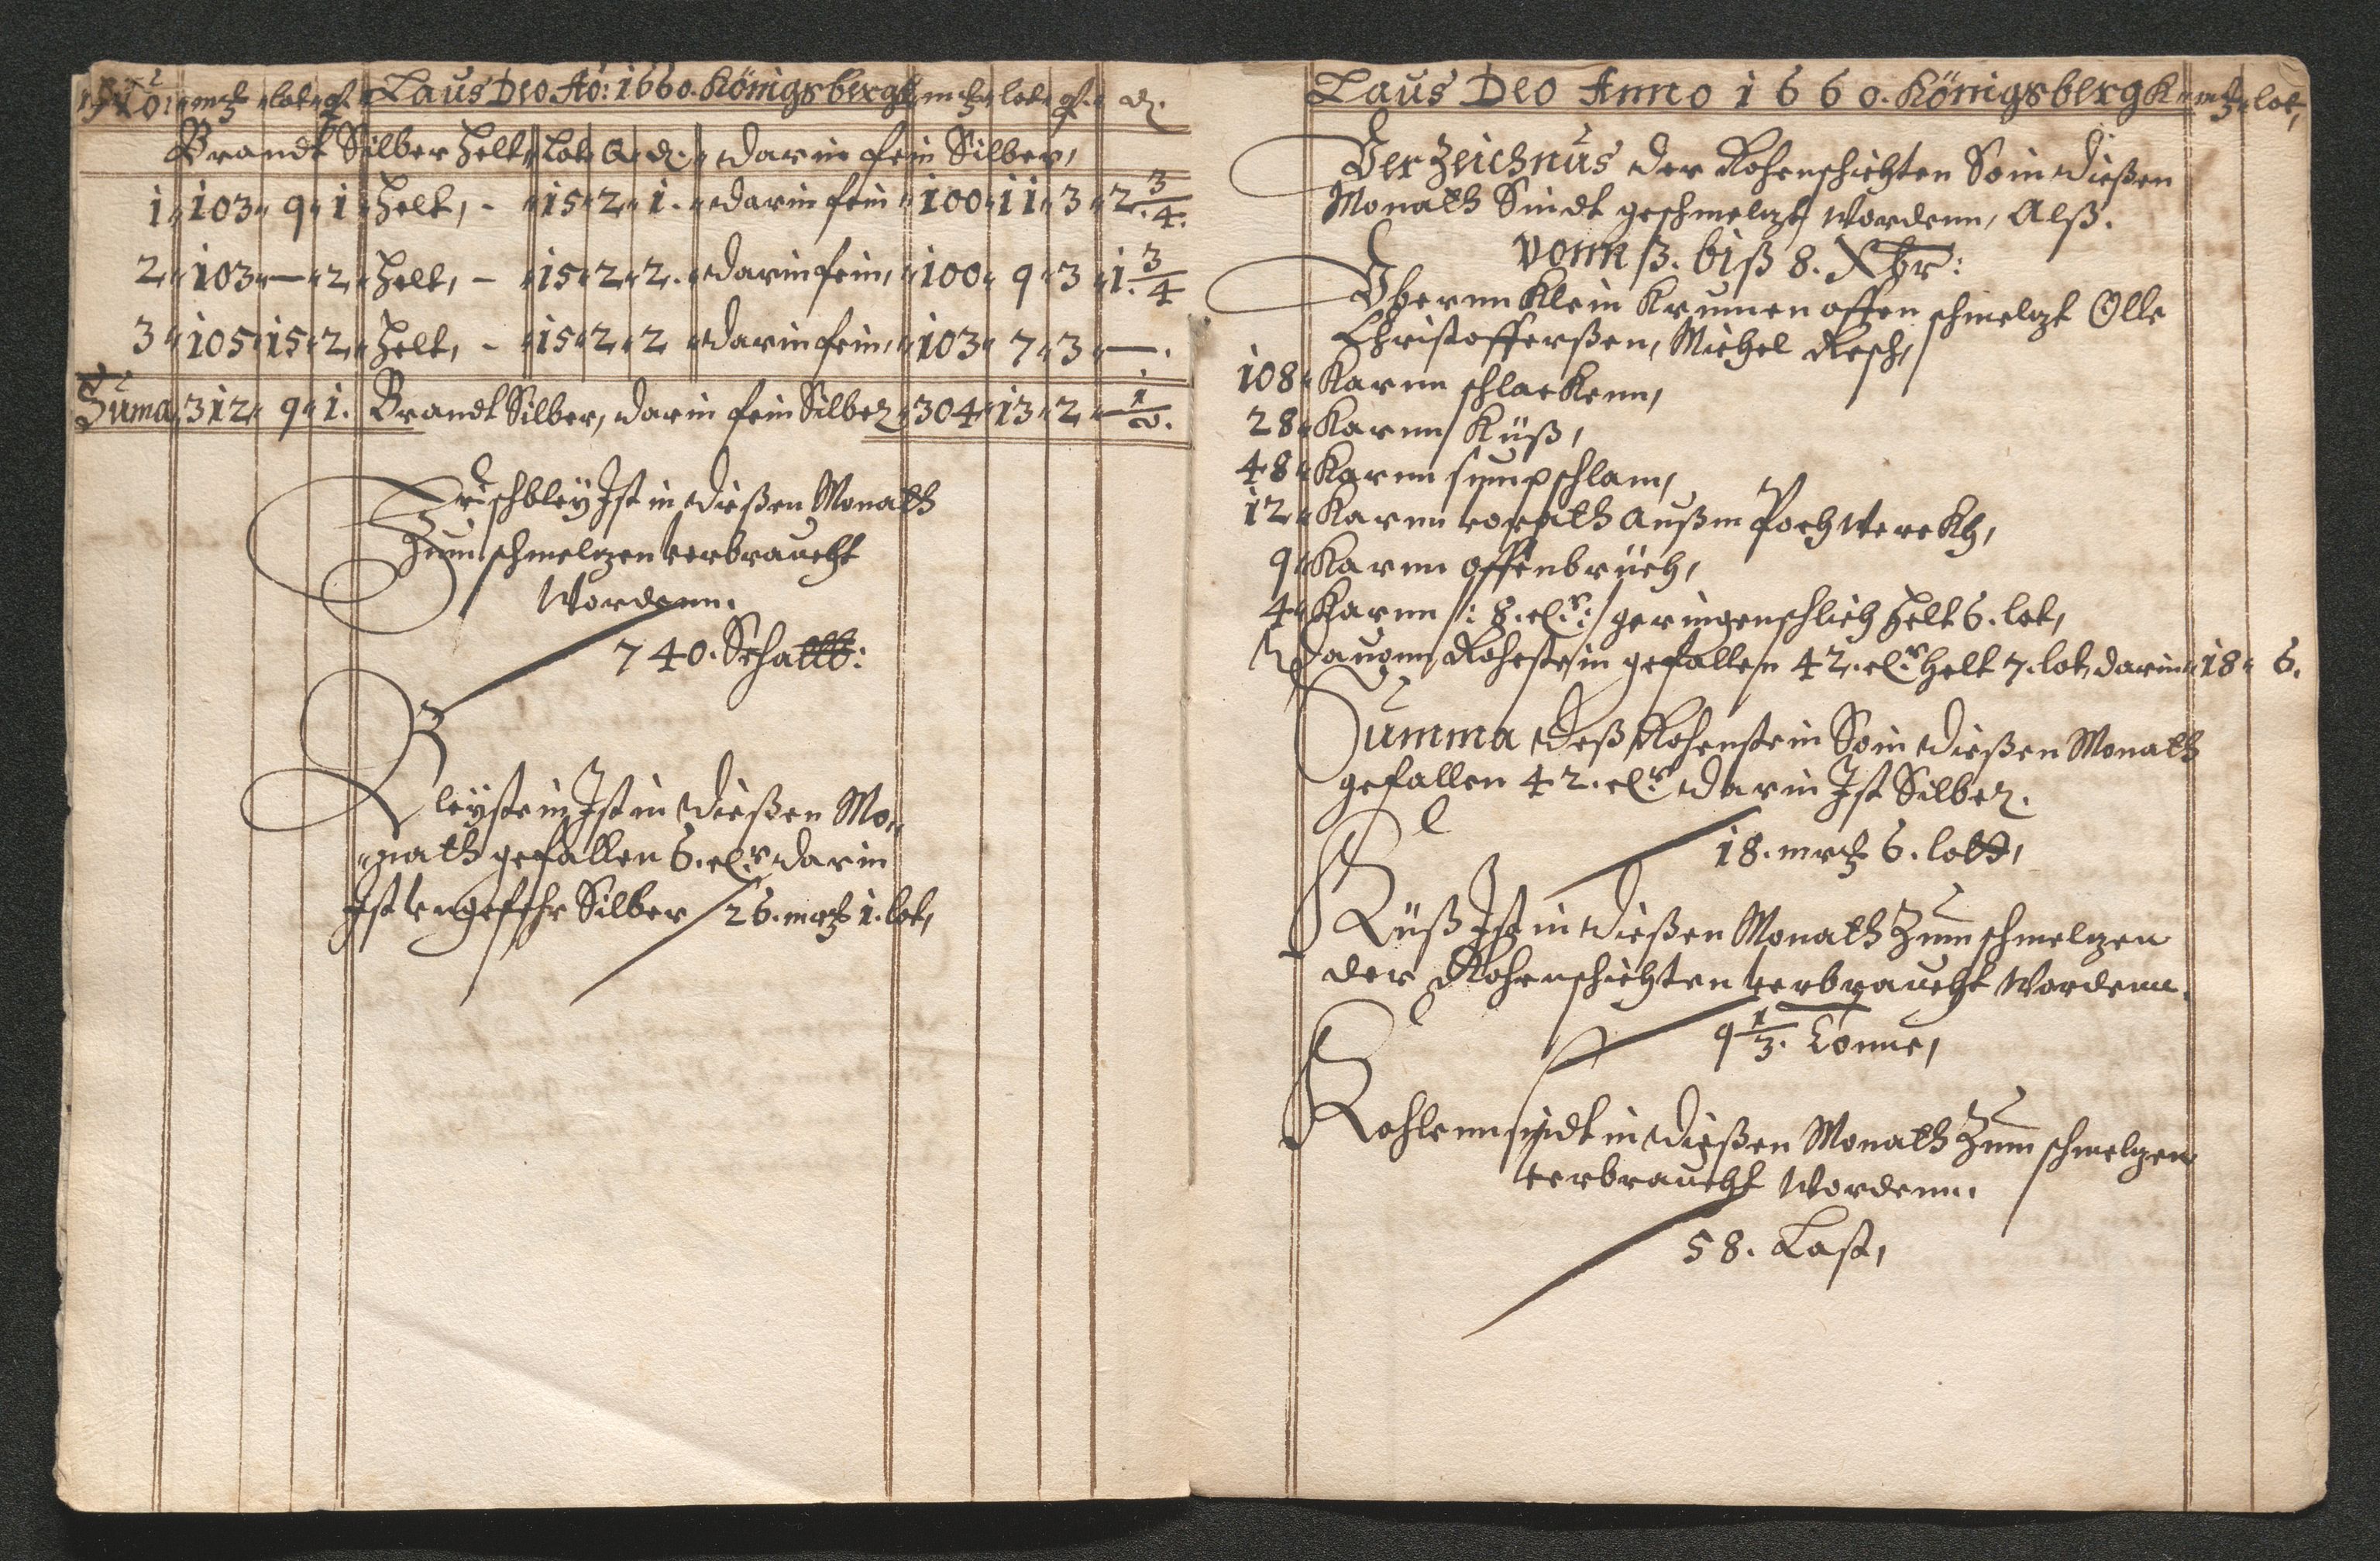 No: mrk lot q. Laus Deo Ao: 1660. Königsbergk mrk lot q. d.
Brandt Silber helt, Lot Q d. darin fein Silber,
1 103 9 1 helt, - 15 2 1. darin fein 100 11 3 2. 3/4.
2 103 — 2 helt, - 15 2 2. darin fein, 100 9 3 1. 3/4
3 105 15 2 helt, - 15 2 2 darin fein, 103 7 3 —.
Suma 312 9 1. Brandt Silber, darin fein Silber 304 13 2 — 1/2.
Frischbley Ist in dießen Monath
Zum schmeltzen verbraucht
Wordenn.
740. Schallb:
Bleystein Ist in dießen Mo-
nath gefallen 6. Clr: darin
Ist vngefehr Silber 26. mrk 1. lot,
Laus Deo Anno 1660. Königsbergk mrk lot,
Verzeichnus der Rohenschichten So in dießen
Monath Sindt geschmeltzt Wordenn, Alß.
vonn 3. biß 8. Xbr:
Vbernn Klein Krumen offen schmeltzt Olle
Christofferßen, Michel Resch,
108 Karnn schlackenn,
28 Karnn Küß,
48 Karnn sumpschlam,
12 Karnn vorath außm Pochwerckh,
9 Karnn offenbrüch,
4 Karnn /: 8. Clr: :/ geringenschlich helt 6. lot,
dauonn Rohstein gefallen 42. Clr: helt 7. lot, darinn 18 6.
Summa deß Rohenstein So in dießen Monath
gefallen 42. Clr: darin Ist Silber.
18. mrk 6. lott,
Küß Ist in dießen Monath Zum schmeltzen
der Rohenschichten verbraucht Wordenn.
9 1/3. Tonne,
Kohlenn sindt in dießen Monath Zum schmeltzen
verbraucht Wordenn.
58. Last,